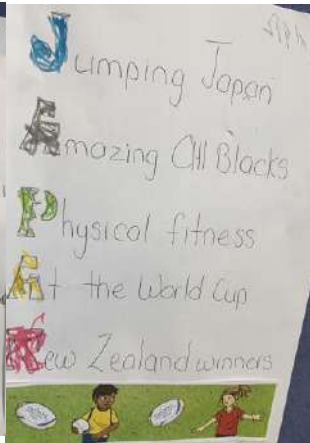 Jumping Japan
Amazing All Blacks
Physical fitness
At the World Cup
New Zealand winners